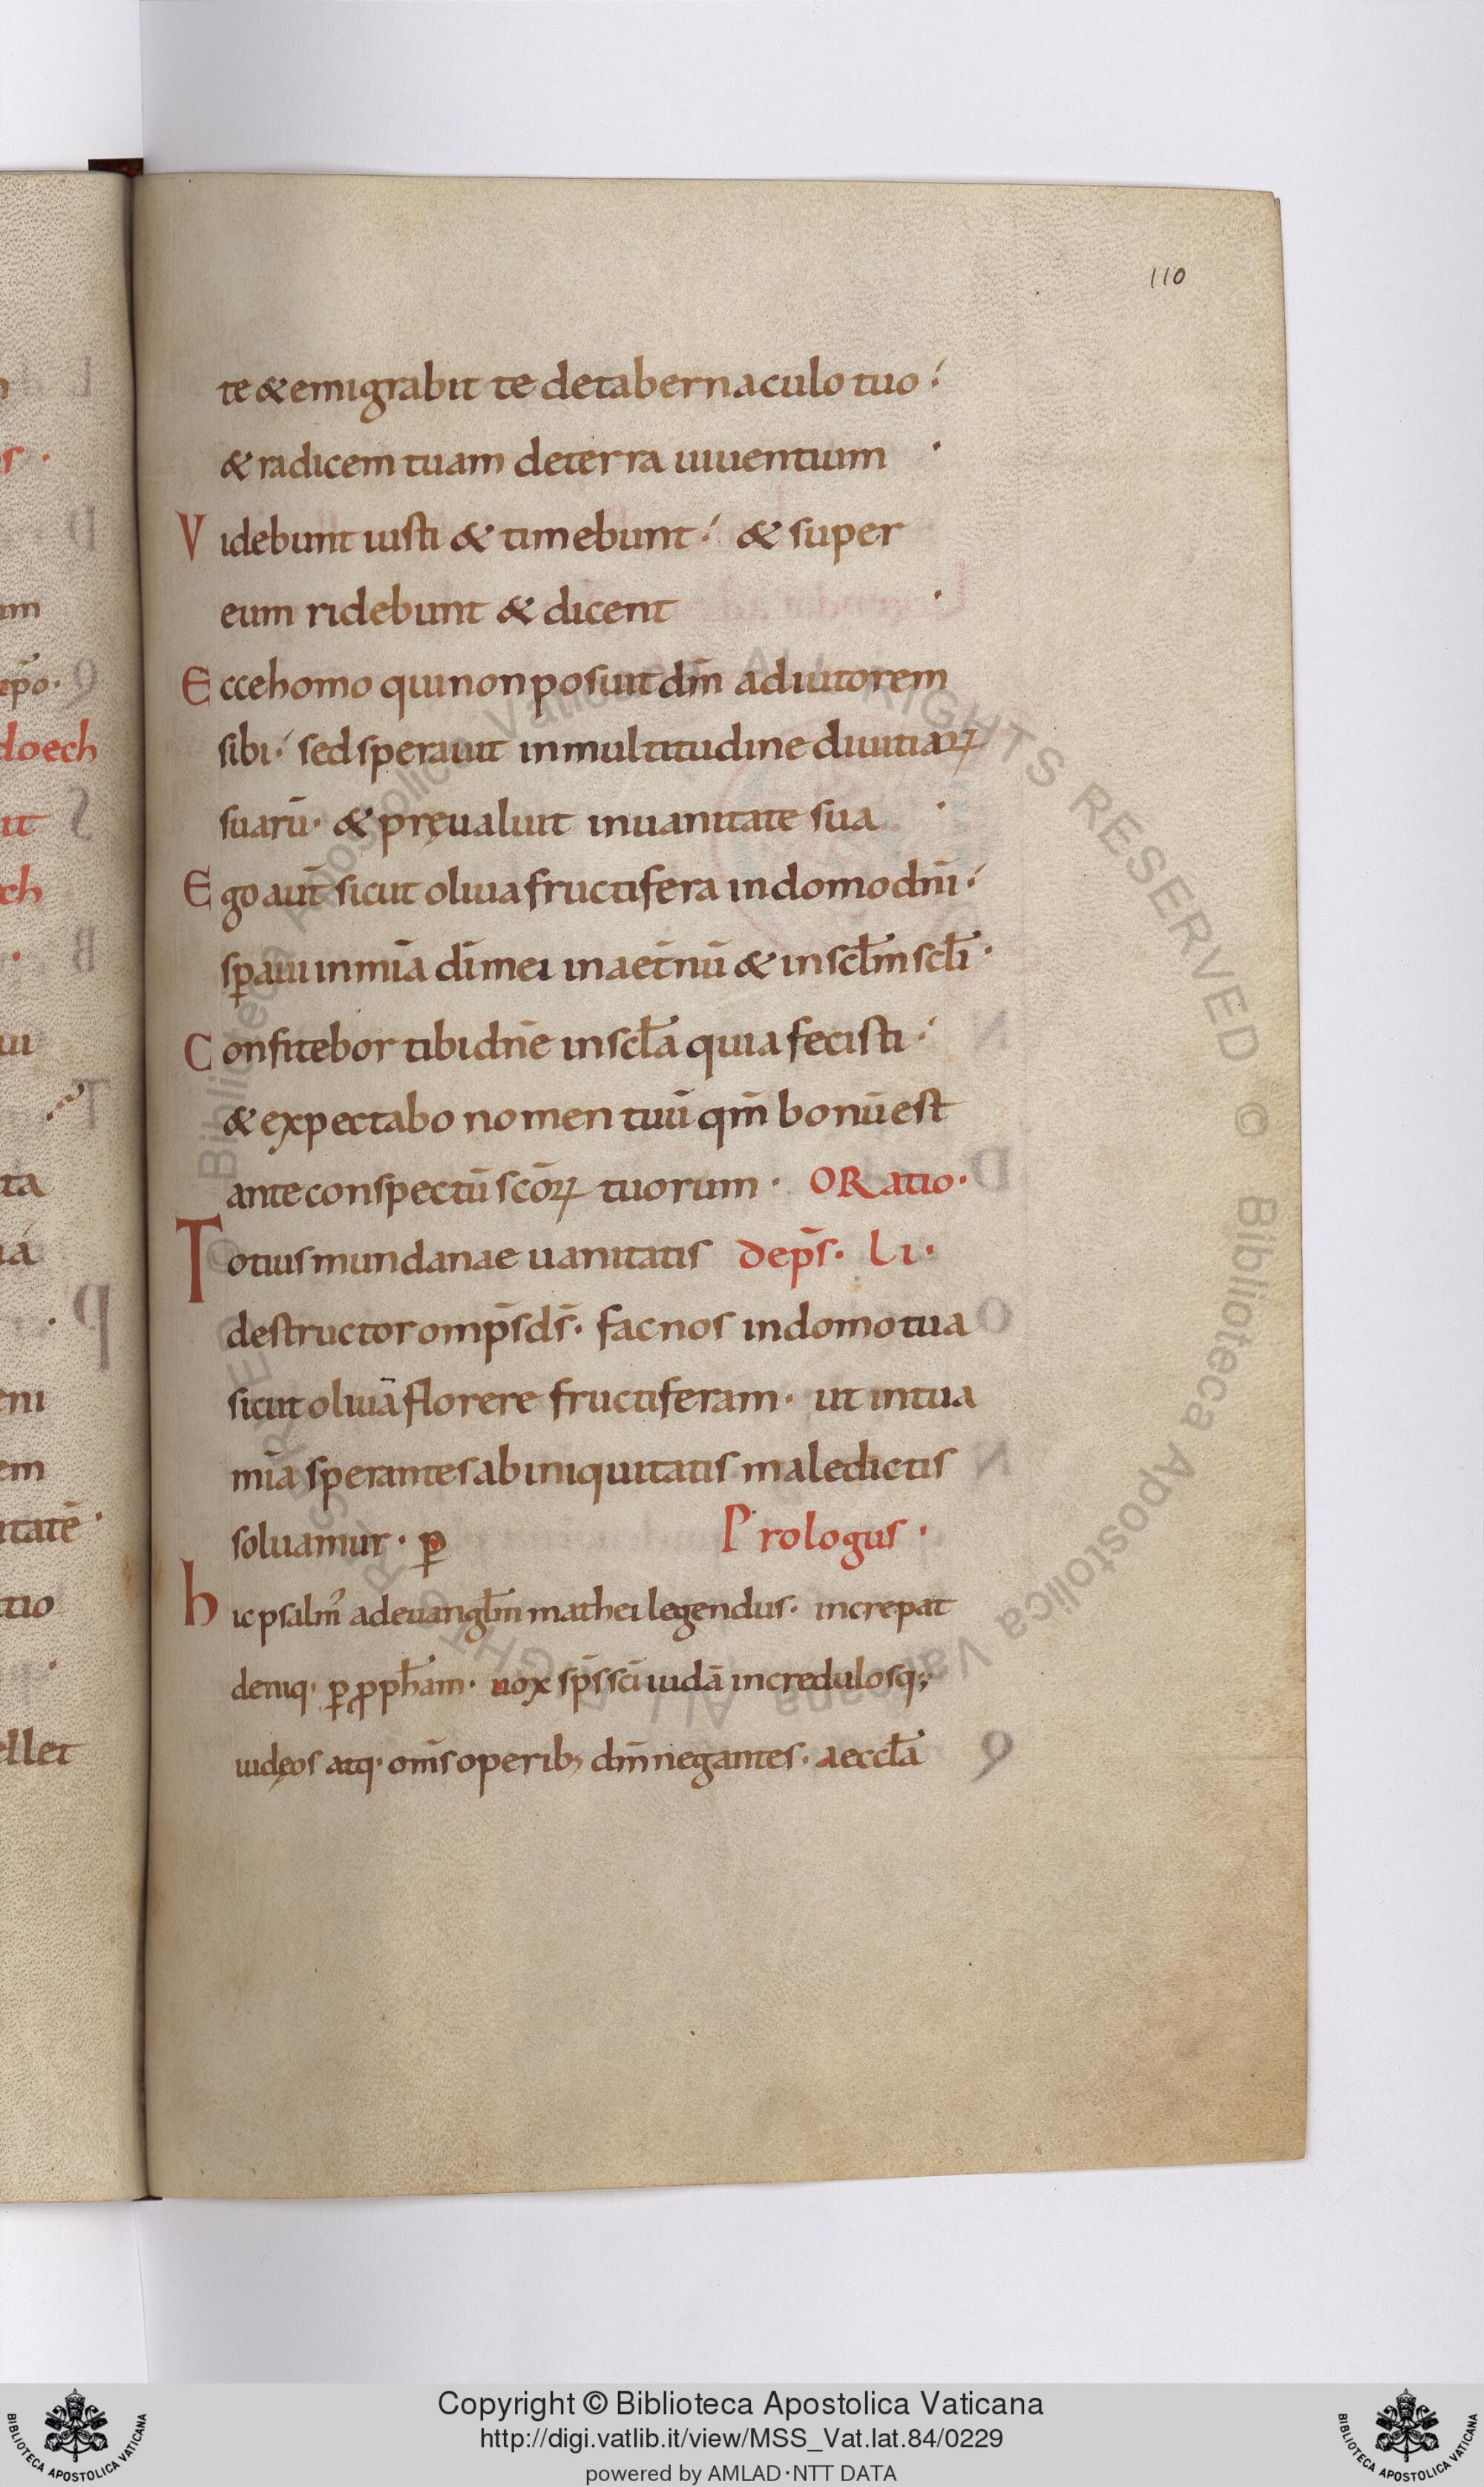 110
te & emigrabit te de tabernaculo tuo
& radicem tuam de terra uiuentium ·
Videbunt iusti & timebunt & super
eum ridebunt & dicent ·
Ecce homo qui non posuit dm̄ adiutorem
sibi sed sperauit in multitudine diuitiaꝝ
suarū· & pręualuit in uanitate sua ·
Ego aut̄ sicut oliua fructifera in domo dn̄i
sꝑaui in mīa dī mei in aet̄nū & in scl̄m scl̄i·
Confitebor tibi dn̄e in scl̄a quia fecisti
& expectabo nomen tuū qm̄ bonū est
ante conspectū sc̄oꝝ tuorum · ORatio·
Totius mundanae uanitatis de ps̄· li·
destructor omps̄ ds̄· fac nos in domo tua
sicut oliuā florere fructiferam· ut in tua
mīa sperantes ab iniquitatis maledictis
soluamur· ꝑ Prologus·
hic psalm̄ ad euangl̄m mathei legendus· increpat
deniq· ꝑ ꝓph̄am· uox sps̄ sc̄i iudā incredulosq;
iudęos atq· om̄s operib; dm̄ negantes· aeccl̄a
ꝯ
doech
ut
ch
ta
eni
em
itatē·
tio
ellet
Copyright © Biblioteca Apostolica Vaticana
http://digi.vatlib.it/view/MSS_Vat.lat.84/0229
powered by AMLAD·NTT DATA
BIBLIOTECA APOSTOLICA VATICANA
BIBLIOTECA APOSTOLICA VATICANA